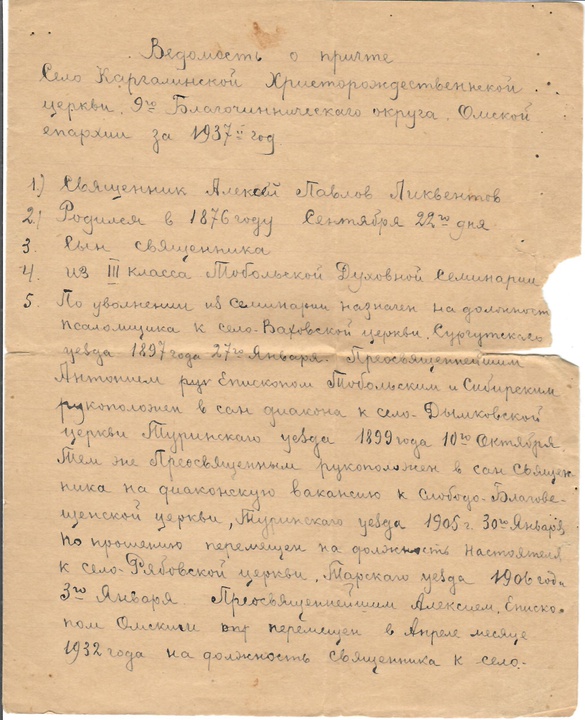 Ведомость о причте
Село Каргалинской Христорождественнской
церкви. 9го Благочинническаго округа. Омской
епархии за 1937й год.
1.) Священник Алексей Павлов Ликвентов
2.) Родился в 1876 году Сентября 22го дня.
3. Сын священника
4. из III класса Тобольской Духовной Семинарии
5. По уволнении из семинарии назначен на должност
псаломщика к село-Ваховской церкви. Сургутскаго
уезда 1897 года 27го Января. Преосвященнейшим
Антонием рук Епископом Тобольским и Сибирским
рукоположен в сан диакона к село-Дымковской
церкви Туринскаго уезда 1899 года 10го Октября
Тем же Преосвященным рукоположен в сан Священ
ника на диаконскую вакансию к Слободо-Благове-
щенской церкви, Туринскаго уезда 1905 г. 30го Января,
по прошению перемещен на должность настоятеля
к село-Рябовской церкви. Тарскаго уезда 1906 года
3го Января. Преосвященнейшим Алексием. Еписко-
пом Омским перемещен в Апреле месяце
1932 года на должность священника к село-